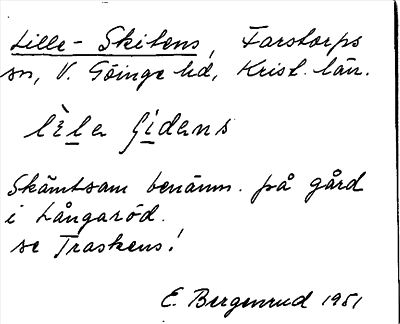 Lille-Skitens, Farstorps
sn, V. Göinge hd, Krist. län.
lìla Gidens
Skämtsam benämn. på gård
i Långaröd.
se Traskens!
E. Bergenrud 1951